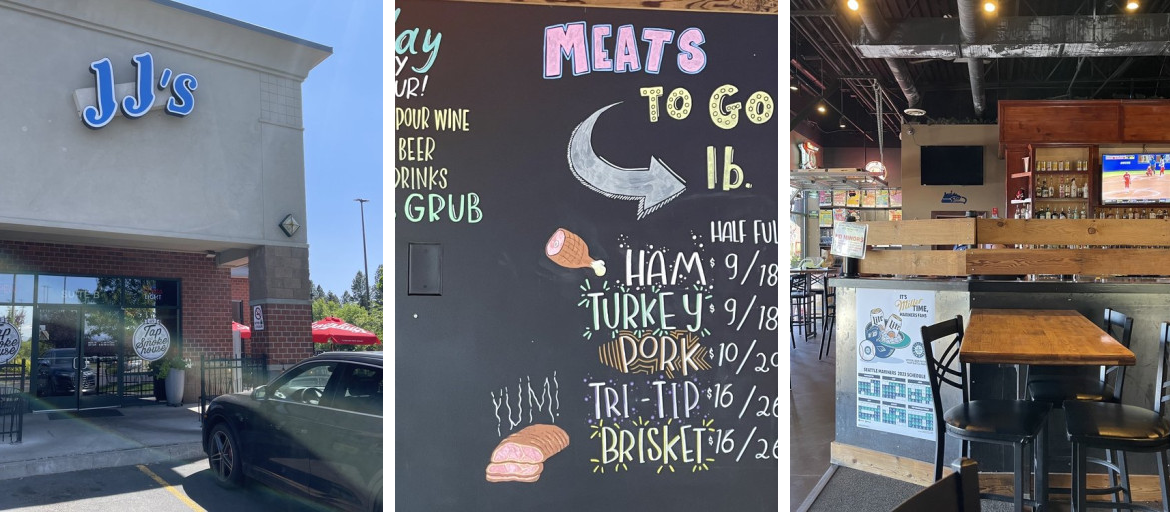 JJ's
Tap
Smoke
house
ay
Y
UR!
POUR WINE
BEER
DRINKS
GRUB
MEATS
TO GO
lb.
HALF FUL
HAM $9/18
TURKEY $9/18
PORK $10/20
TRI-TIP $16/26
BRISKET $16/26
YUM!
IT'S
Miller
TIME,
MARINERS FANS
SEATTLE MARINERS 2023 SCHEDULE